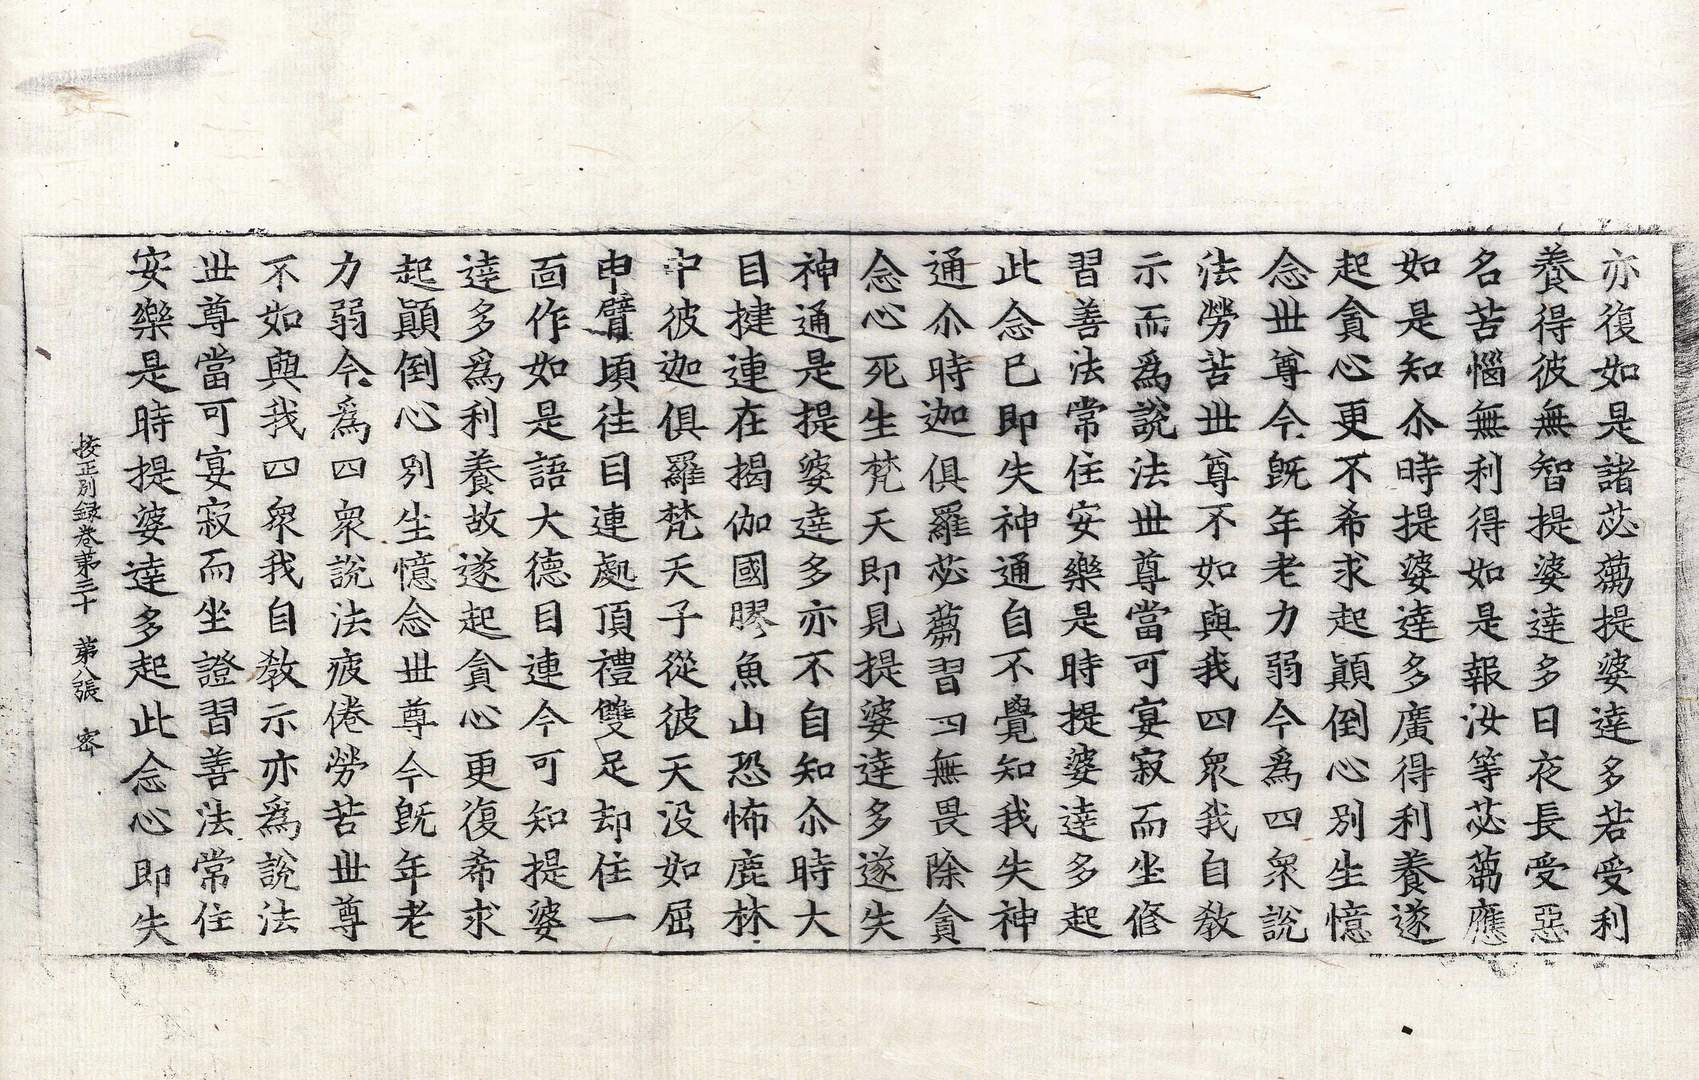 亦復如是諸苾蒭提婆達多若受利
養得彼無智提婆達多日夜長受惡
名苦惱無利得如是報汝等苾蒭應
如是知尒時提婆達多廣得利養遂
起貪心更不希求起顚倒心別生憶
念世尊今旣年老力弱今爲四衆說
法勞苦世尊不如與我四衆我自教
示而爲說法世尊當可宴寂而坐修
習善法常住安樂是時提婆達多起
此念已即失神通自不覺知我失神
通尒時迦俱羅苾蒭習四無畏除貪
念心死生梵天即見提婆達多遂失
神通是提婆達多亦不自知尒時大
目揵連在揭伽國膠魚山恐怖鹿林
中彼迦俱羅梵天子從彼天没如屈
申臂頃往目連處頂禮雙足却住一
面作如是語大德目連今可知提婆
達多爲利養故遂起貪心更復希求
起顚倒心別生憶念世尊今旣年老
力弱今爲四衆說法疲倦勞苦世尊
不如與我四衆我自教示亦爲說法
世尊當可宴寂而坐證習善法常住
安樂是時提婆達多起此念心即失
按正別録卷第三十　第八張　密